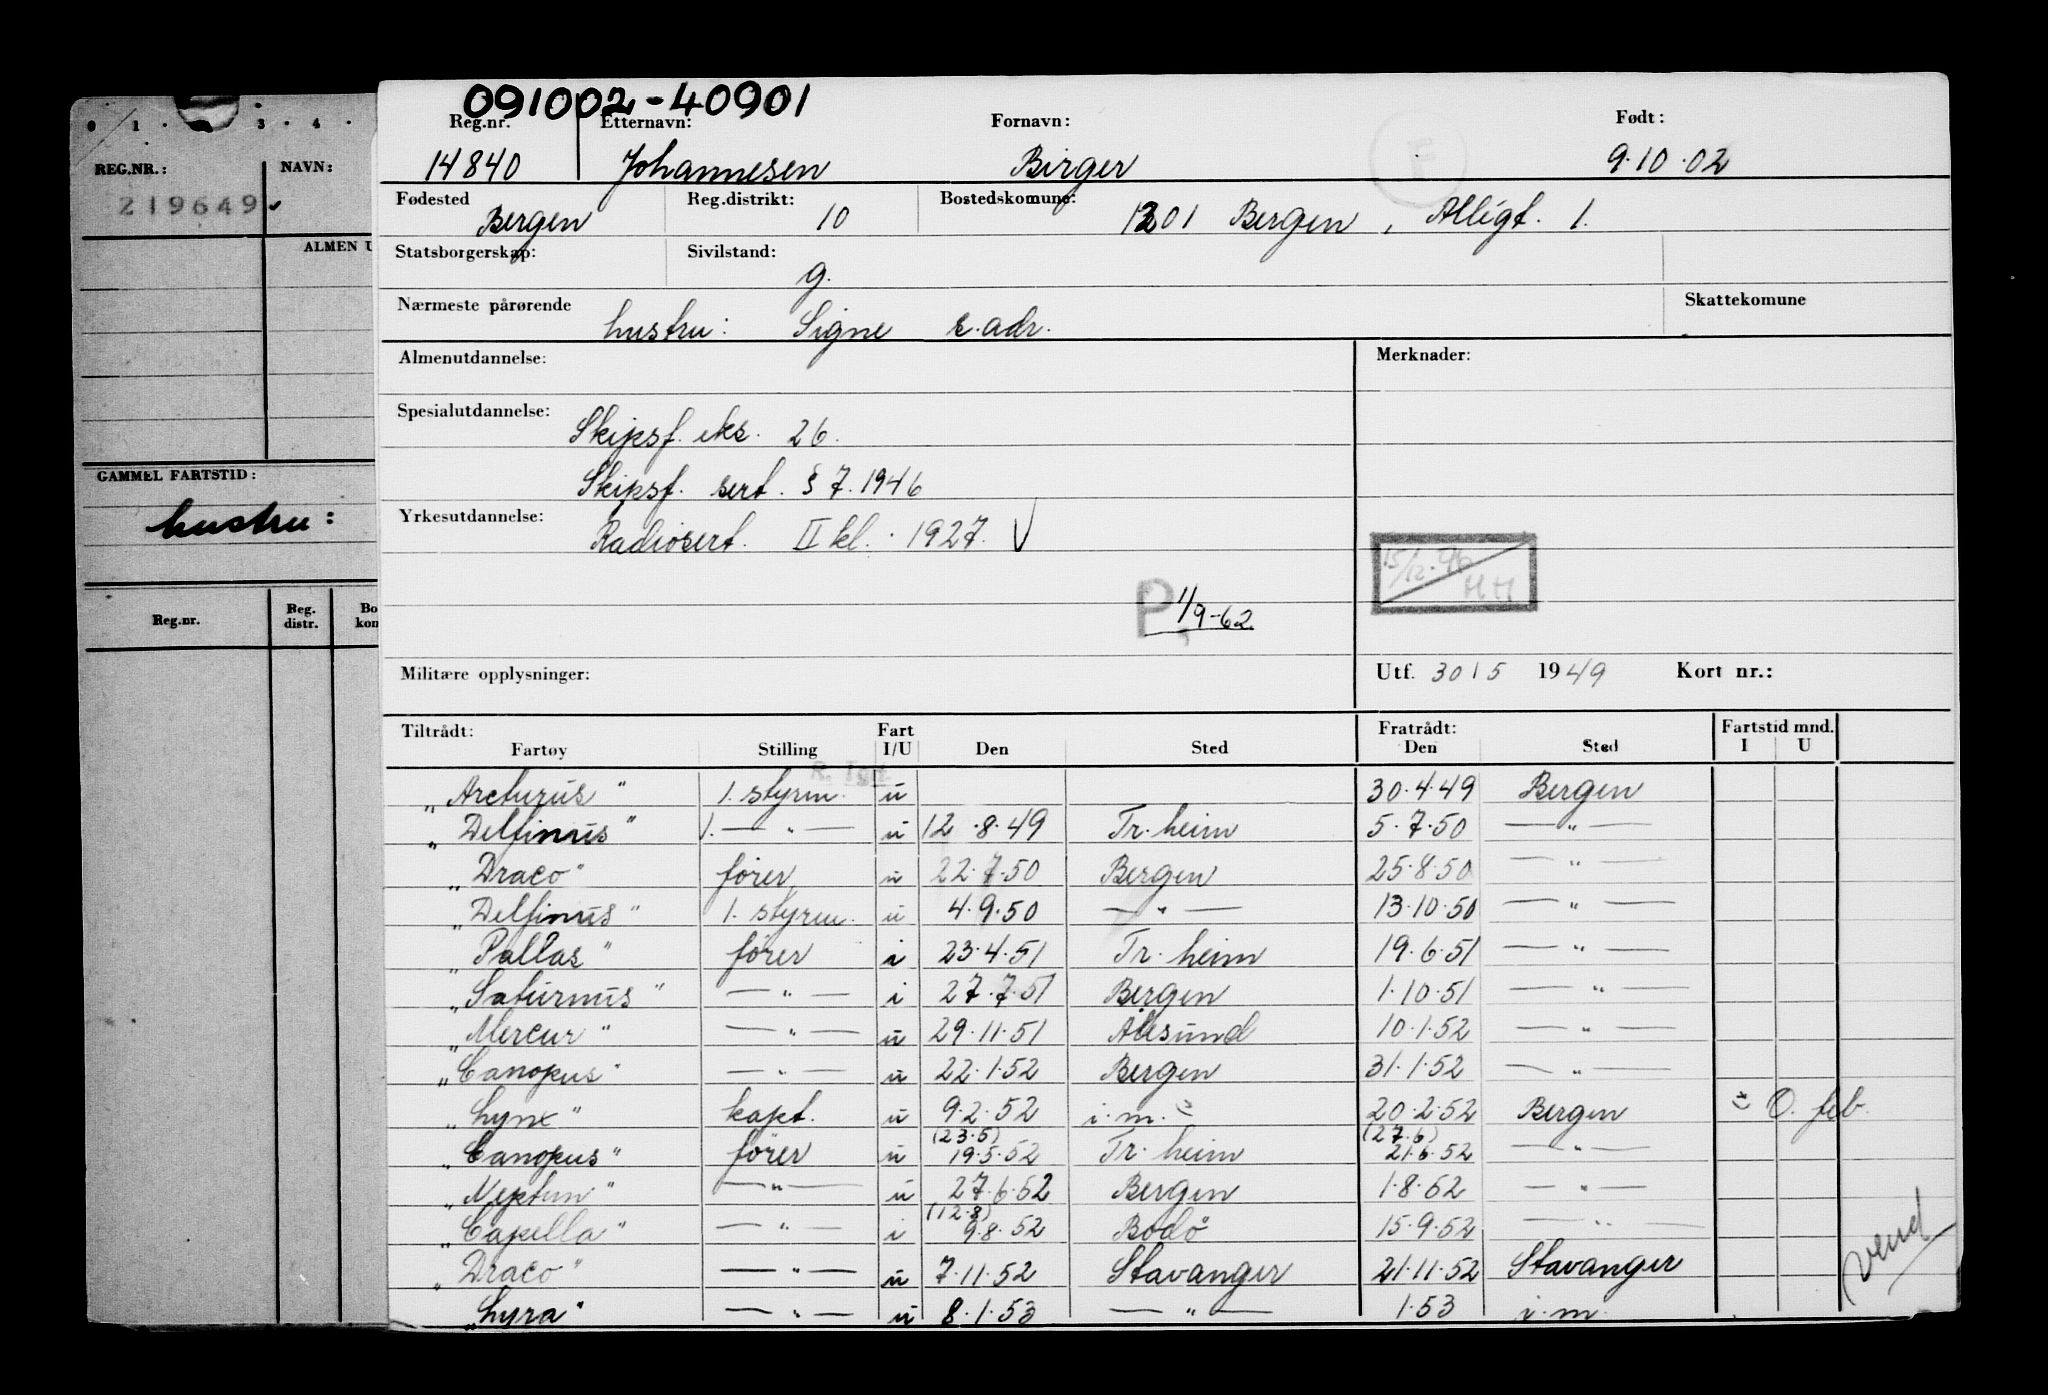 091002-40901
0 1 . 3 . 4 .
REG.NR.: NAVN:
219649
ALMEN U
GAMMEL FARTSTID:
hustru:
Reg.nr. Reg. distr. Bo kon
Reg.nr. Etternavn: Fornavn: Født:
14840 Johannesen Birger 9.10.02
Fødested Reg.distrikt: Bostedskomune:
Bergen 10 1301 Bergen, Allégt. 1.
Statsborgerskap: Sivilstand:
g.
Nærmeste pårørende Skattekomune
hustru: Signe s.adr.
Almenutdannelse: Merknader:
Spesialutdannelse: Skipsf. eks. 26.
Skipsf. sert. § 7. 1946
Yrkesutdannelse: Radiosert. II kl. 1927. V
15/12.46 HH
P 1/9-62
Militære opplysninger: Utf. 30 15 1949 Kort nr.:
Tiltrådt: Fart Fratrådt: Fartstid mnd.
Fartøy Stilling I/U Den Sted Den Sted I U
"Arcturus" 1. styrm. u 30.4.49 Bergen
"Delfinus" 1. — " — u 12.8.49 Tr.heim 5.7.50 — " —
"Draco" fører u 22.7.50 Bergen 25.8.50 — " —
"Delfinus" 1. styrm. u 4.9.50 — " — 13.10.50 — " —
"Pallas" fører i 23.4.51 Tr.heim 19.6.51 — " —
"Saturnus" — " — i 27.7.51 Bergen 1.10.51 — " —
"Mercur" — " — u 29.11.51 Ålesund 10.1.52 — " —
"Canopus" — " — u 22.1.52 Bergen 31.1.52 — " —
"Lynx" kapt. u 9.2.52 i.m. 20.2.52 Bergen 0. feb.
(23.5) (27.6)
"Canopus" fører u 19.5.52 Tr.heim 21.6.52 — " —
"Neptun" — " — u 27.6.52 Bergen 1.8.52 — " —
(12.8)
"Capella" — " — i 9.8.52 Bodö 15.9.52 — " —
"Draco" — " — u 7.11.52 Stavanger 21.11.52 Stavanger
"Lyra" — " — u 8.1.53 — " — 1.53 i.m.
vend